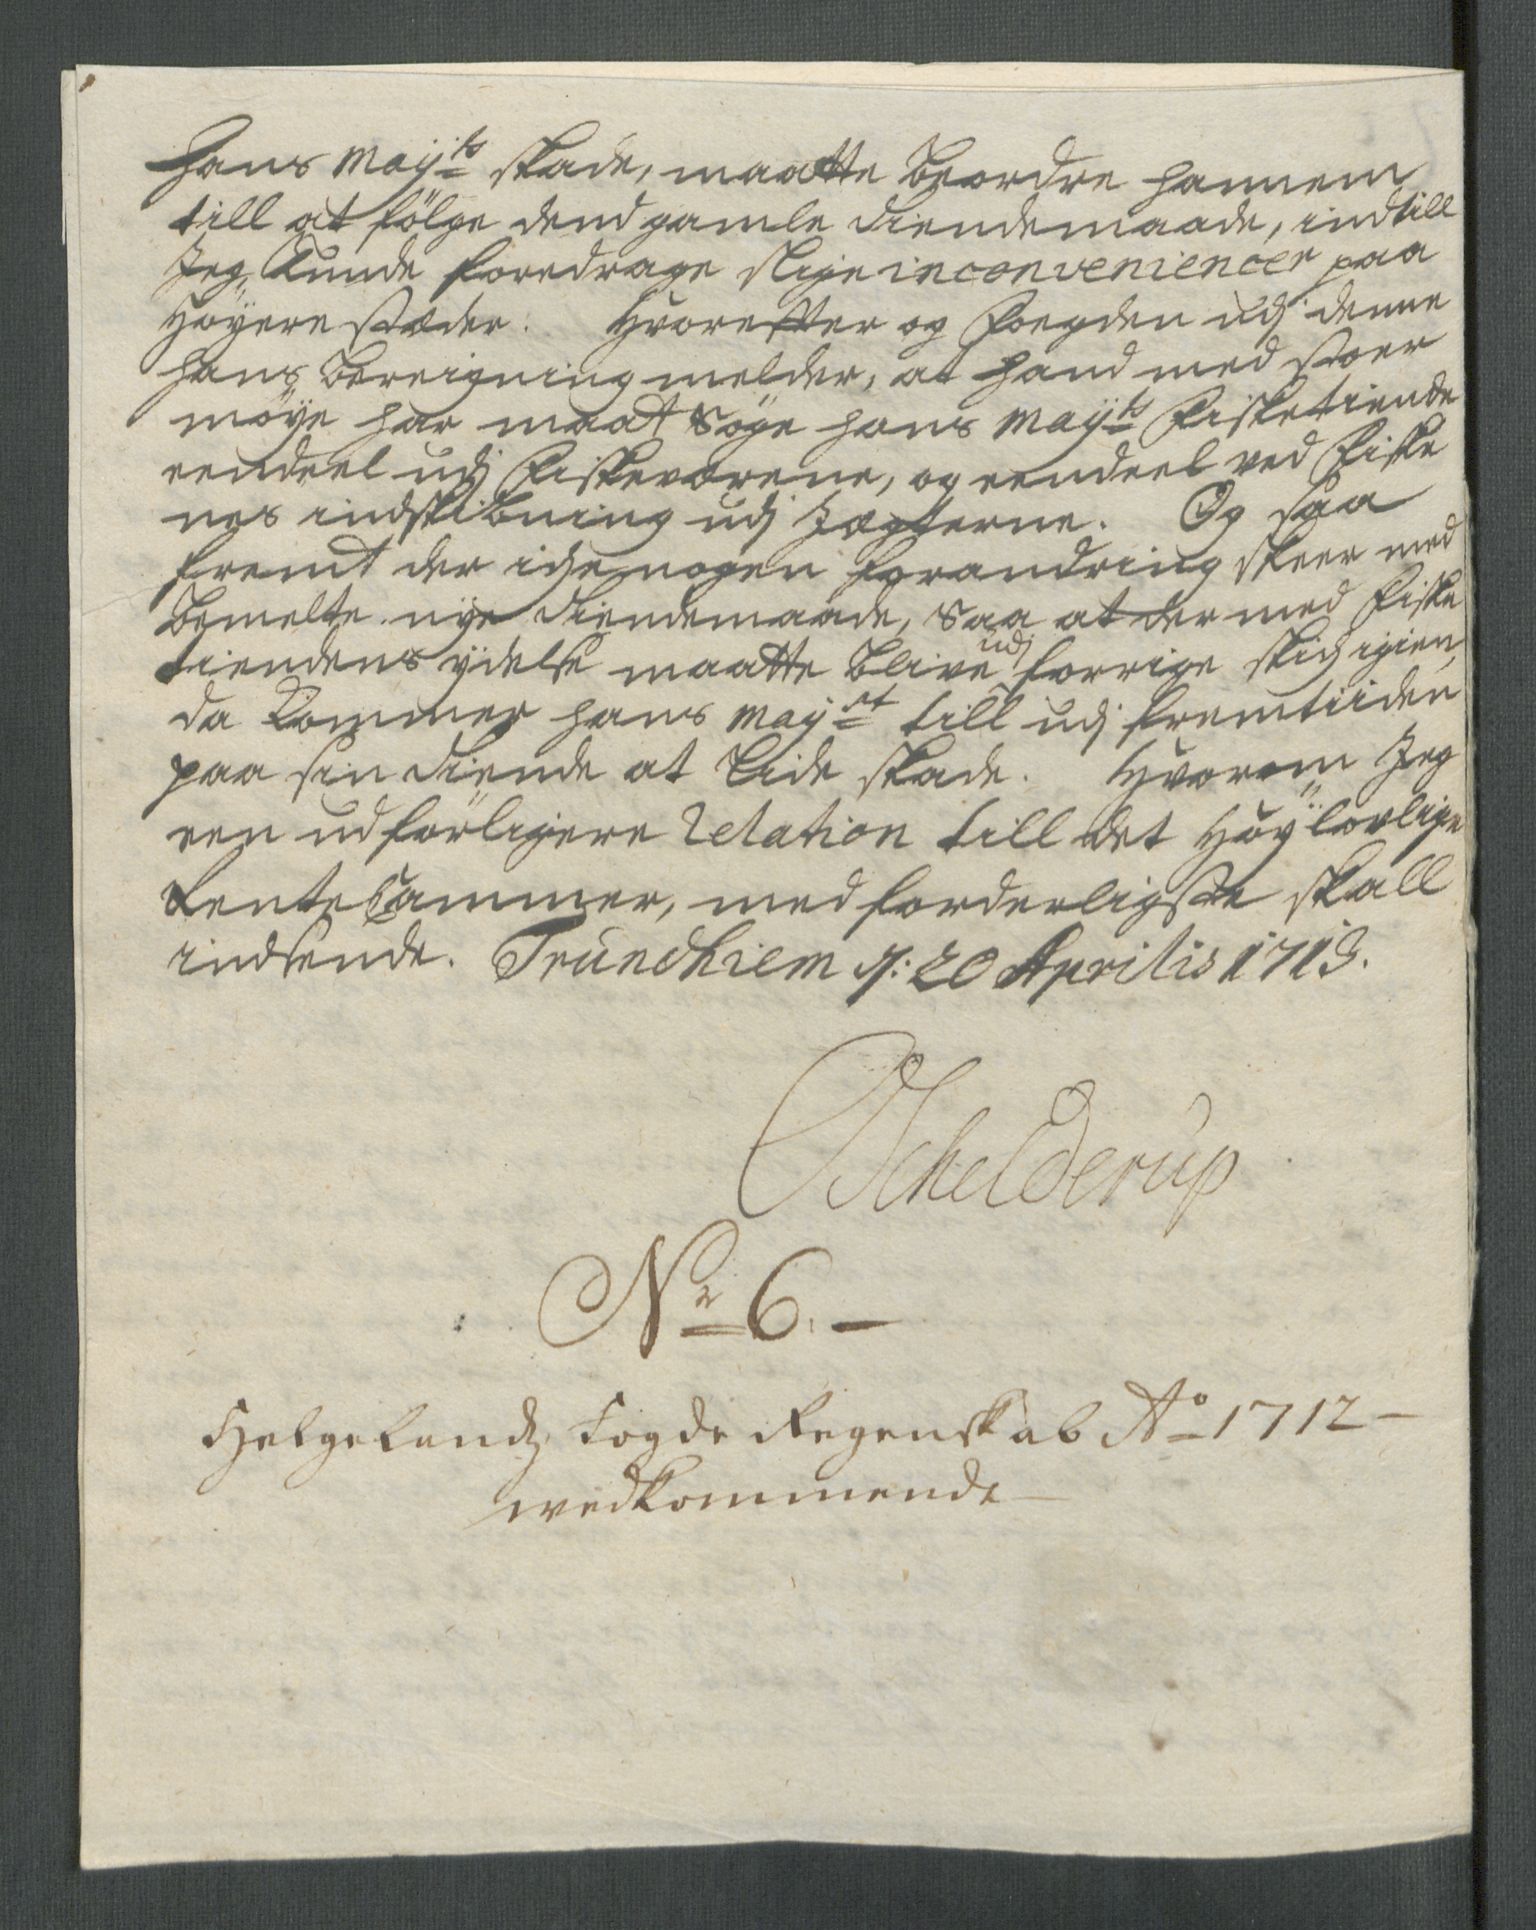 Hans Mayts skade, maatte beordre hannem
till at fölge dend gamle tiendemaade, indtill
Jeg kunde foredrage slige inconveniencer paa
Höyere stæder. Hvorefter og fogden udj denne
hans beregning melder, at hand med stoer
möye har maat söge hans Mayts fisketiende
eendeel udj fiskeværene, og eendeel ved fiske
nes indskibning udj Jægterne. Og saa
fremt der icke nogen forandring skeer med
bemelte nye tiendemaade, saa at der med fiske
tiendens ydelse maatte blive udj forrige skick igien,
da kommer hans Mayet till udj fremtiiden
paa sin tiende at lide skade. Hvorom Jeg
een udförligere Relation till det Höylovlige
Rentecammer, med forderligste skall
indsende. Trundhiem d: 20 Aprilis 1713.
Schelderup
No 6. –
Helgelandz Fogde Regenskab Ao 1712 –
vedkommende –